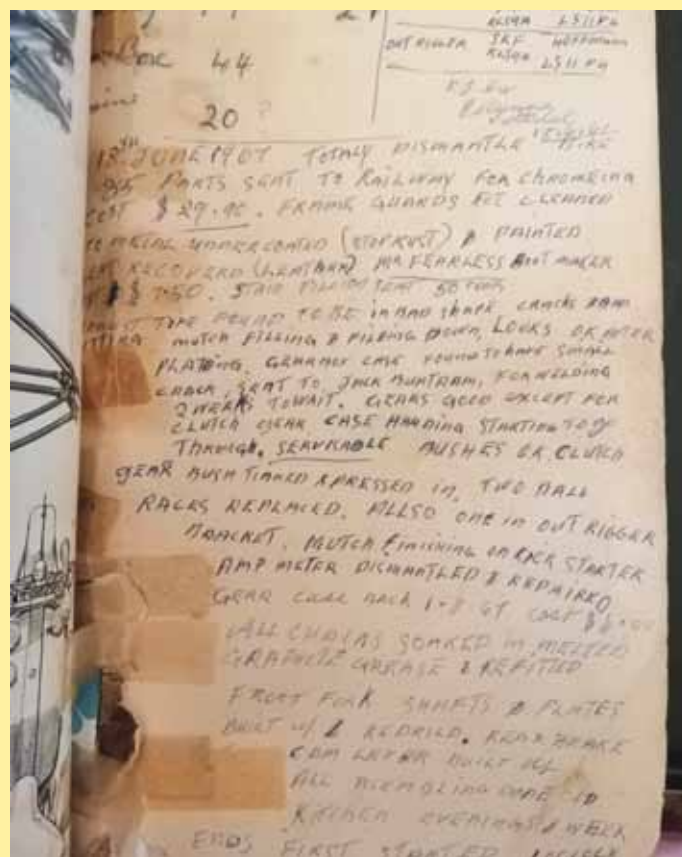 RLS9A LS11FH
OUTRIGGER SKF HOFFMANN
RLS9A LS11FH
Box 44
20 ?
13TH JUNE 1967 TOTALY DISMANTLE
PARTS SENT TO RAILWAY FOR CHROMEING
COST $ 29.90. FRAME GUARDS ETC CLEANED
METAL UNDERCOATED (STOPRUST) & PAINTED
RECOVERD (LEATHER) MR FEARLESS BOOT MAKER
$ 7.50. 50
TYPE FOUND TO BE IN BAD SHAPE CRACKS
MUTCH FILLING & FILDING DOWN, LOOKS OK AFTER
PLATING. GEARBOX CASE FOUND TO HAVE SMALL
CRACK, SENT TO JACK BUNTRAM, FOR WELDING
2 WEEKS TO WAIT. GEARS GOOD EXCEPT FOR
CLUTCH GEAR CASE HARDING STARTING TO
THROUGH. SERVICABLE BUSHES OK CLUTCH
GEAR BUSH TINNED & PRESSED IN, TWO BALL
RACES REPLACED. ALLSO ONE IN OUT RIGGER
BRACKET. MUTCH FINISHING ON KICK STARTER
AMP METER DISMANTLED & REPAIRED
GEAR CASE BACK
ALL CHAINS SOAKED IN MELTED
GRAPHITE GREASE & REFITTED
FRONT FORK SHAFTS & PLATES
BUILT UP & REDRILD. REAR BRAKE
CAM LEVER BUILT UP
ALL ASSEMBLING DONE IN
KITCHEN EVENINGS & WEEK
ENDS FIRST STARTED